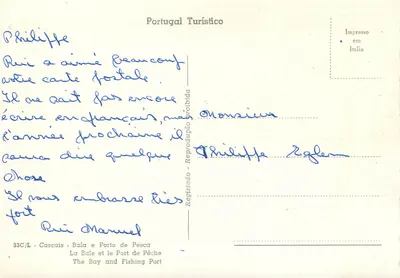 Portugal Turístico
Impresso
em
Italia
Philippe
Rui a aimé beaucoup
votre carte postale.
Il ne sait pas encore
écrire en français, mais
l'année prochaine il
pourra dire quelque
chose
Il vous embrasse très
fort
Rui Manuel
Monsieur
Philippe
Registado - Reprodução proibida
33C/L - Cascais - Baía e Porto de Pesca
La Baie et le Port de Pêche
The Bay and Fishing Port